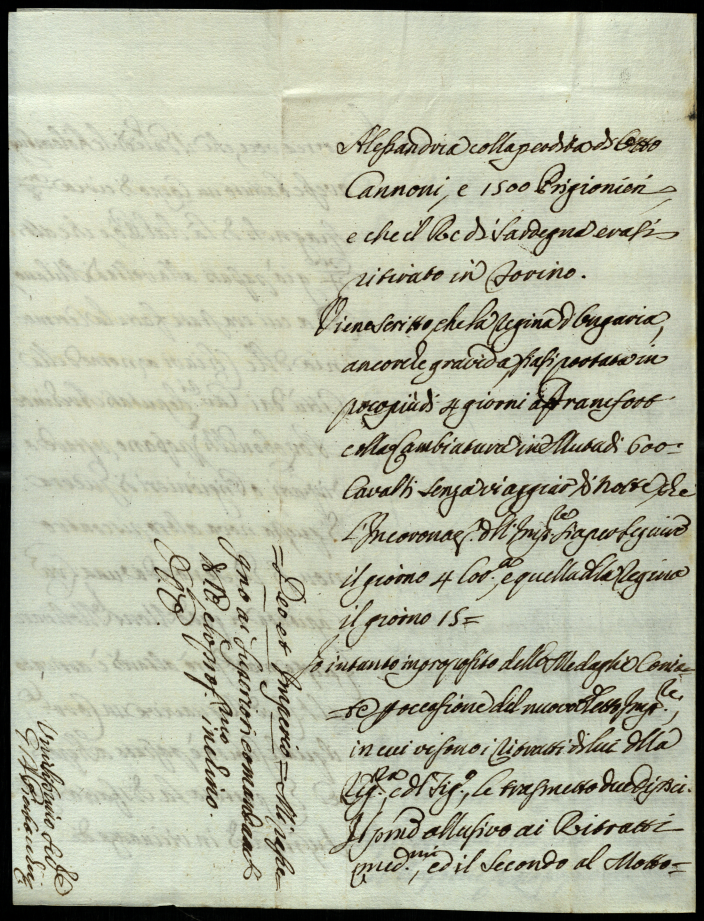 Alessandria colla perdita di Otto
Cannoni, e 1500 Prigionieri
e che il Re di Sardegna erasi
ritirato in Torino.
Viene scritto, che la Regina d'Ungaria,
ancorche gravida, siasi portata in
poco più di 4 giorni a Francfort
colla Cambiatura in Muta di 600=
Cavalli senza viaggiar di Notte, che
l'Incoronaz.e dell'Imp.le sia per seguire
il giorno 4 Cor.te, e quella della Regina
il giorno 15=
Io intanto in proposito delle Medaglie Conia=
=te p occasione del nuovo Eletto Imp.le,
in cui visono i Ritratti di lui della
Reg.na, e del Fig.o, le trasmetto due disti.
Il pmo allusivo ai Ritratti
med.mi, ed il Secondo al Motto=
=Deo et Imperio= Mi rasse
gno ai Superiori comandam.ti
di V. e prof.me inchino.